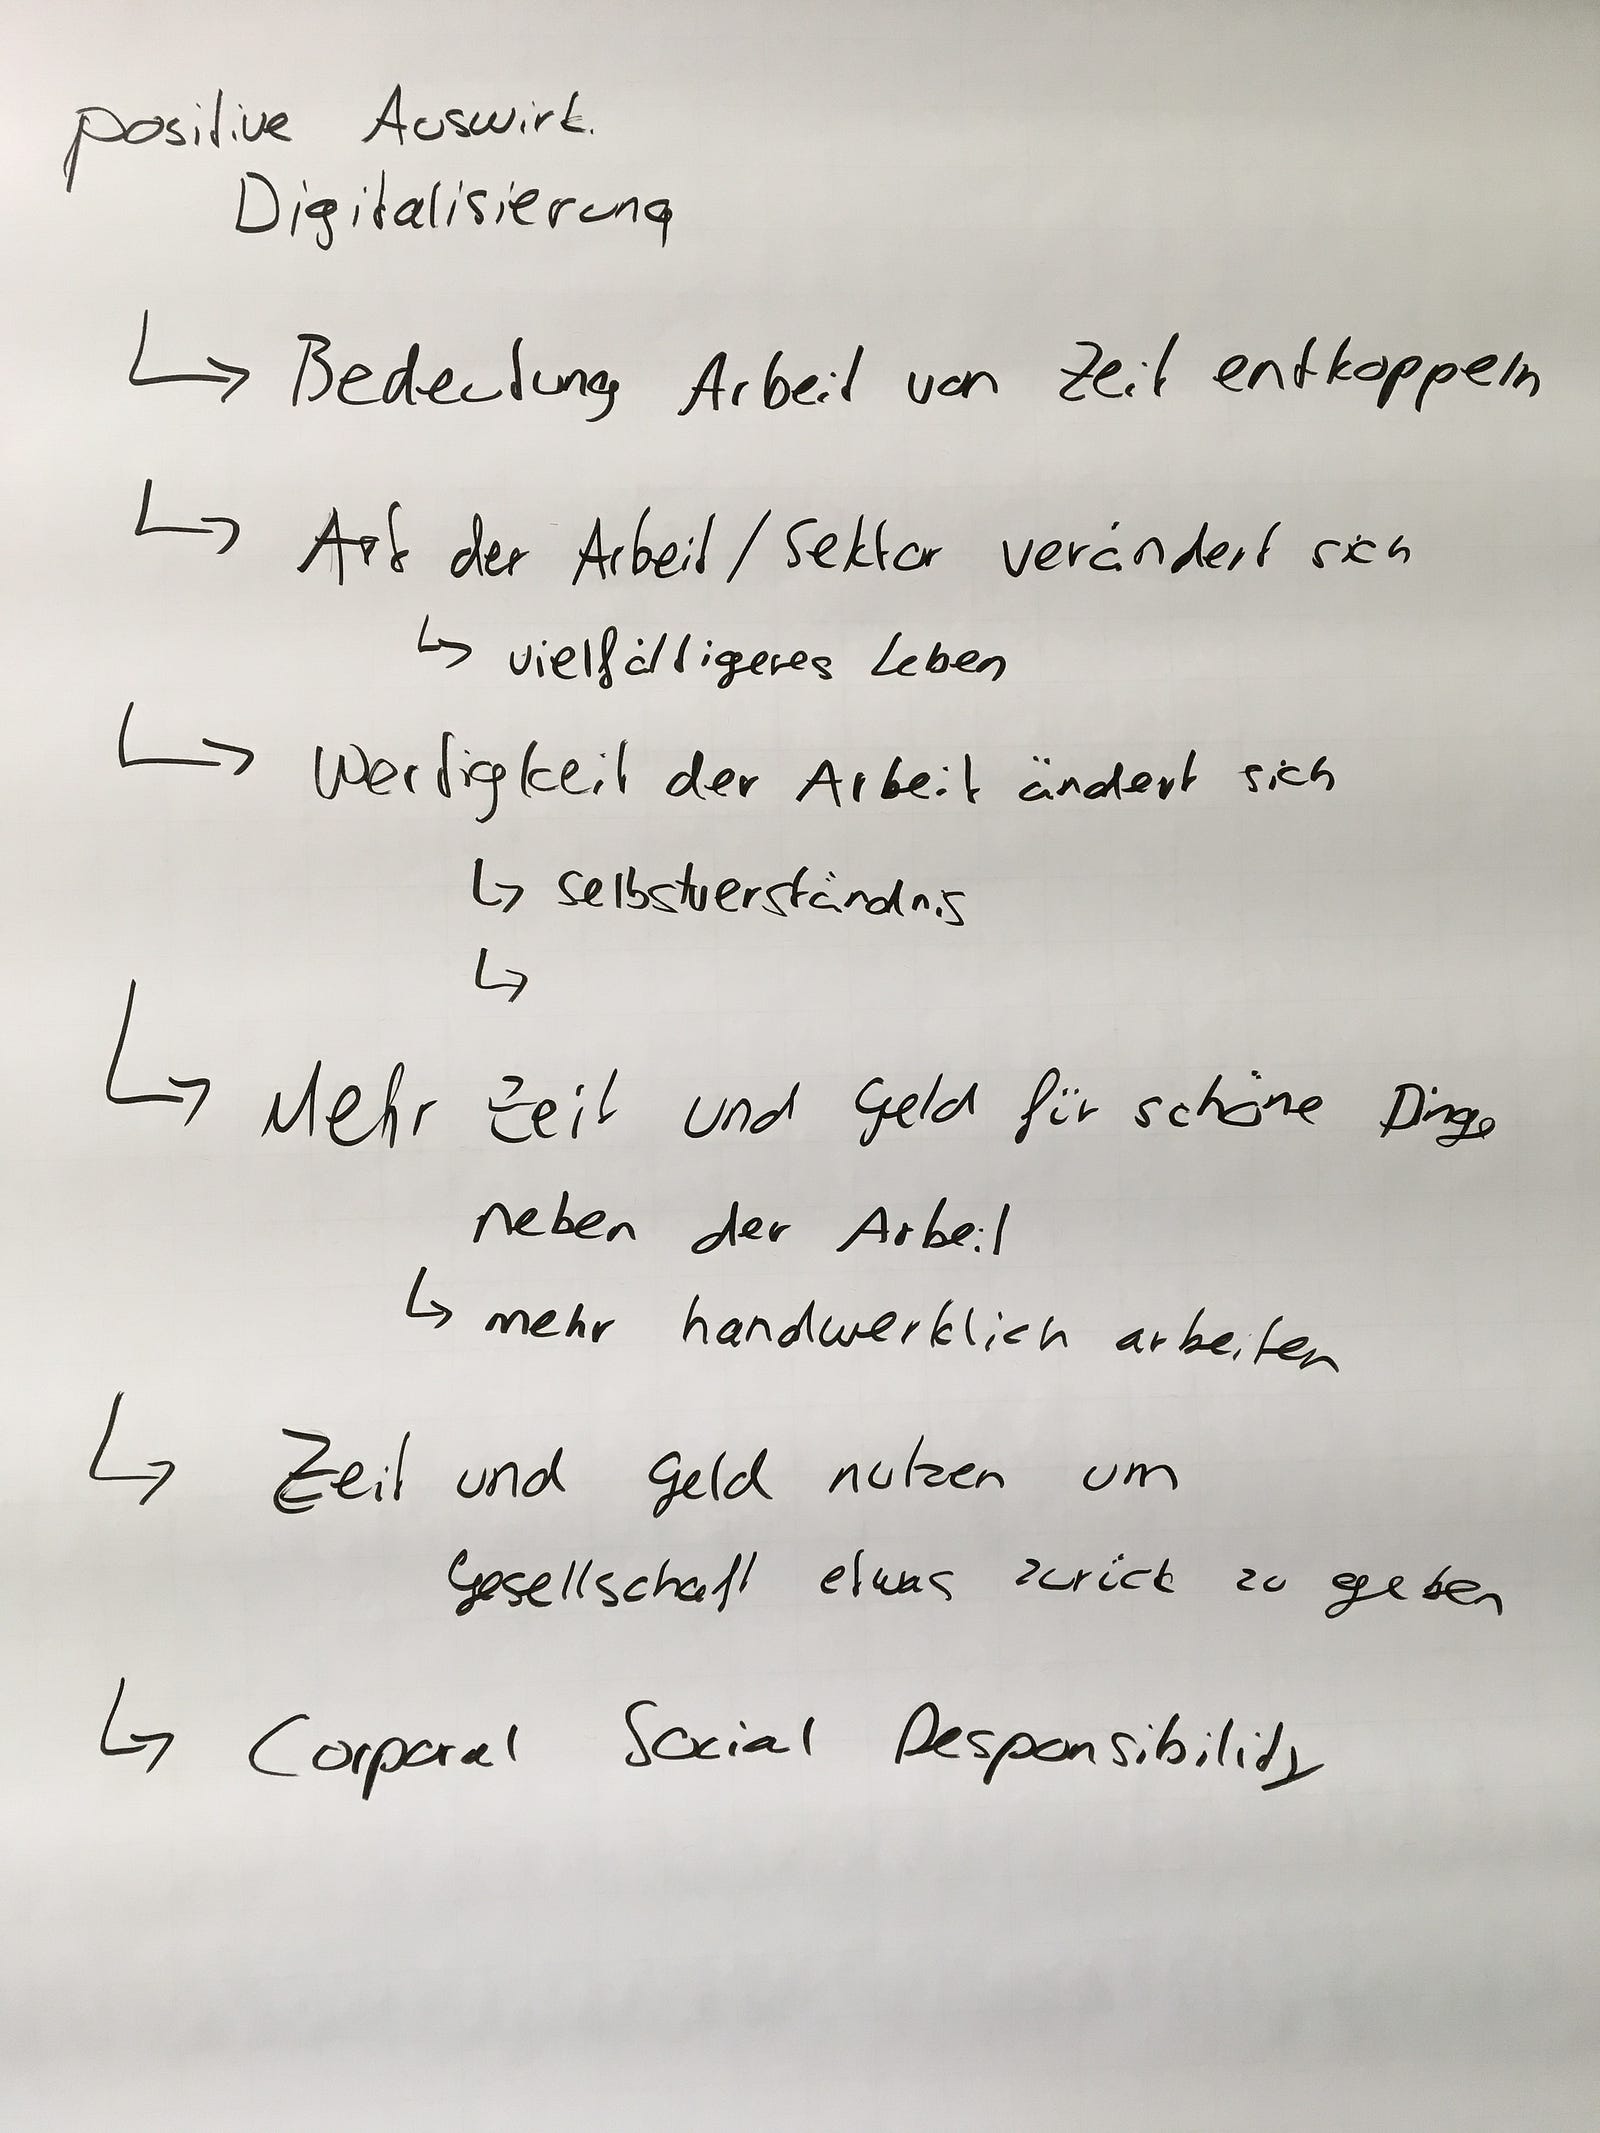 positive Auswirk.
Digitalisierung
↳ Bedeutung Arbeit von Zeit entkoppeln
↳ Art der Arbeit / Sektor verändert sich
↳ vielfältigeres Leben
↳ Wertigkeit der Arbeit ändert sich
↳ Selbstverständnis
↳
↳ Mehr Zeit und Geld für schöne Dinge
neben der Arbeit
↳ mehr handwerklich arbeiten
↳ Zeit und Geld nutzen um
Gesellschaft etwas zurück zu geben
↳ Corporat Social Responsibility